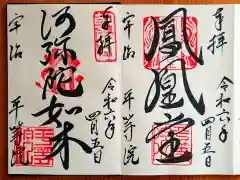 奉拝
鳳凰堂
令和六年
四月五日
宇治
平等院
奉拝
阿弥陀如来
令和六年
四月五日
宇治
平等院